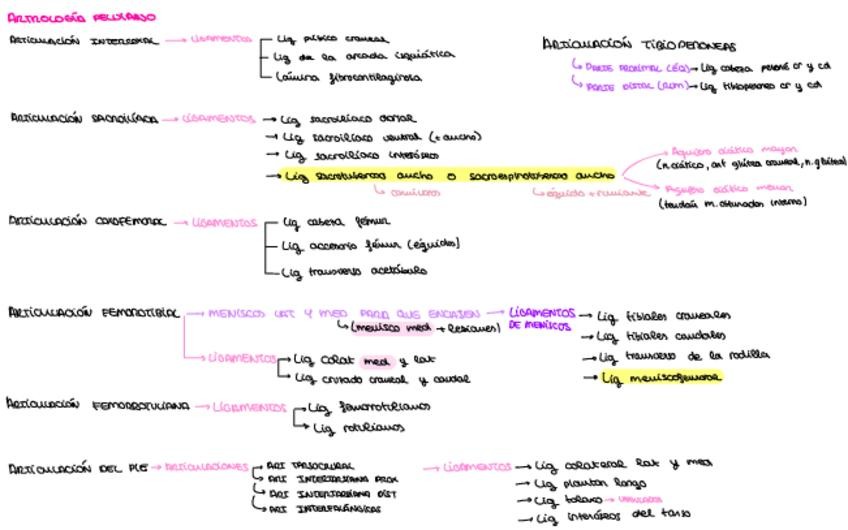 ARTROLOGÍA PELVIANO
ARTICULACIÓN INTERCOXAL → LIGAMENTOS
Lig púbico craneal
Lig de la arcada isquiática
Lámina fibrocartilaginosa
ARTICULACIÓN TIBIOPERONEAS
PARTE PROXIMAL (EQ) → Lig cabeza peroné cr y cd
PARTE DISTAL (RUM) → Lig tibioperoneo cr y cd
ARTICULACIÓN SACROILÍACA → LIGAMENTOS
→ Lig sacroilíaco dorsal
→ Lig sacroilíaco ventral (+ ancho)
→ Lig sacroilíaco interóseo
→ Lig sacrotuberoso ancho o sacroespinotuberoso ancho
carnívoros
équido + rumiante
Agujero ciático mayor
(n. ciático, art glútea craneal, n. glúteal)
Agujero ciático menor
(tendón m. obturador interno)
ARTICULACIÓN COXOFEMORAL → LIGAMENTOS
Lig cabeza fémur
Lig accesorio fémur (équidos)
Lig transverso acetábulo
ARTICULACIÓN FEMOROTIBIAL → MENISCOS LAT Y MED PARA QUE ENCAJEN → LIGAMENTOS DE MENISCOS
(menisco med + lesiones)
→ Lig tibiales craneales
→ Lig tibiales caudales
→ Lig transverso de la rodilla
→ Lig meniscofemoral
LIGAMENTOS
Lig colat med y lat
Lig cruzado craneal y caudal
ARTICULACIÓN FEMORROTULIANA → LIGAMENTOS
Lig femorrotulianos
Lig rotulianos
ARTICULACIÓN DEL PIE → ARTICULACIONES
ART TARSOCRURAL
ART INTERTARSIANA PROX
ART INTERTARSIANA DIST
ART INTERFALÁNGICAS
→ LIGAMENTOS
→ Lig colateral lat y med
→ Lig plantar largo
→ Lig talaro →
→ Lig interóseos del tarso